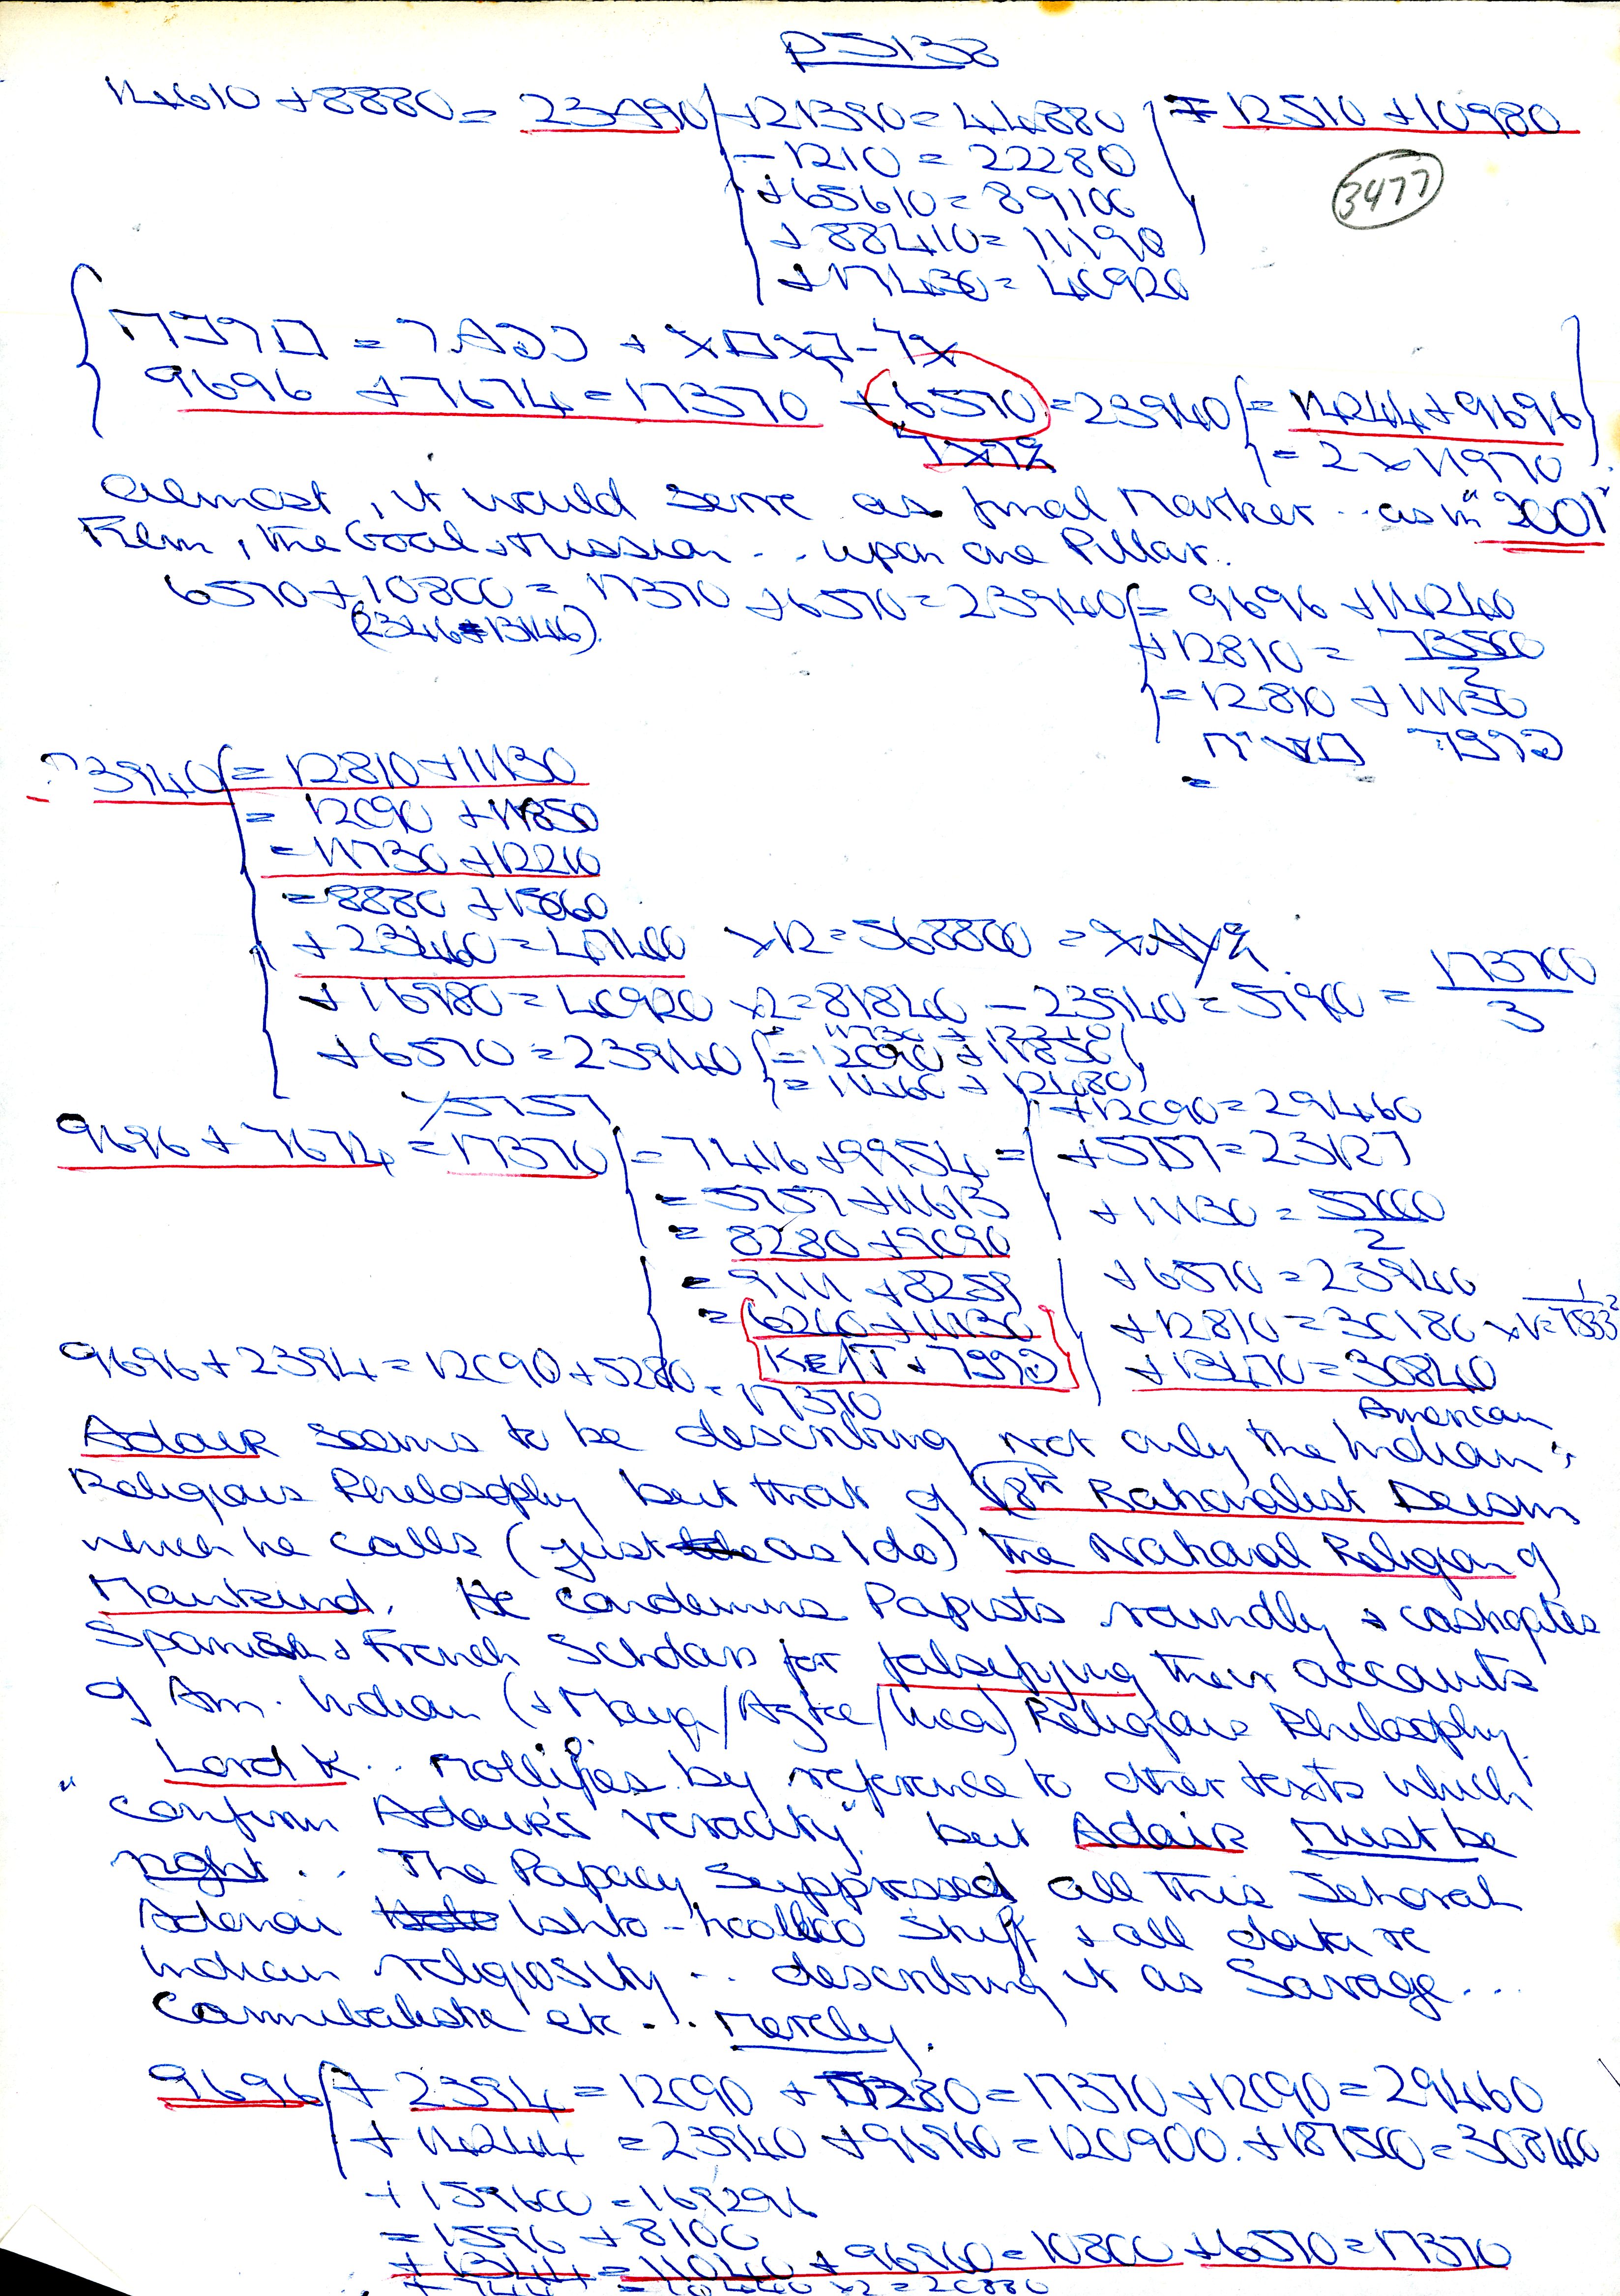 P5138
14610 + 8880 = 23490 + 21390 = 44880 = 12510 + 10980
- 1210 = 22280
3477
+ 65610 = 89100
+ 88410 = 111900
+ 17430 = 40920
9696 + 7674 = 17370 + 6570 = 23940 = 14244 + 9696
= 2 x 11970
Almost, it would serve as final Marker .. as in "2001"
Film, the Goal & Mission .. upon one Pillar..
6570 + 10800 = 17370 + 6570 = 23940 = 9696 + 14244
(2346 + 13146)
+ 12810 = 73500
2
= 12810 + 11130
23940 = 12810 + 11130
= 12090 + 11850
= 11730 + 12210
= 8880 + 15060
+ 23460 = 47400 x 12 = 568800
+ 16980 = 40920 x 2 = 81840 - 23940 = 57900 = 173700
3
+ 6570 = 23940 = 11730 + 12210
= 12090 + 11850
= 11460 + 12480
5757
+ 12090 = 29460
9696 + 7674 = 17370 = 7416 + 9954 = + 5757 = 23127
= 5757 + 11613
+ 11130 = 57000
2
= 8280 + 9090
= 9111 + 8259
+ 6570 = 23940
= 6240 + 11130
+ 12810 = 30180
9696 + 2394 = 12090 + 5280 = 17370
+ 13470 = 30840
Adair seems to be describing not only the American Indian's
Religious Philosophy but that of 18th Rationalist Deism
which he calls (just as I do) the Natural Religion of
Mankind. He condemns Papists roundly & castigates
Spanish & French Scholars for falsifying their accounts
of Am. Indian (& Maya/Aztec/Inca) Religious Philosophy.
Lord K .. Mollifies by reference to other texts which
"confirm Adair's veracity" but Adair must be
right .. The Papacy suppressed all this
Stuff & all data re
Indian religiosity .. describing it as Savage ...
Cannibalistic etc ... merely.
9696 + 2394 = 12090 + 5280 = 17370 + 12090 = 29460
+ 14244 = 23940 + 96960 = 120900 + 187500 = 308400
+ 159600 = 169296
= 1596 + 8100
+ 1344 = 11040 + 96960 = 10800 + 6570 = 17370